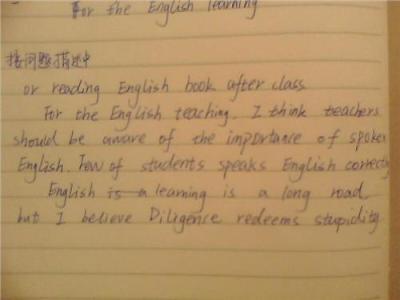 For the English learning
接问题描述中
or reading English book after class
For the English teaching. I think teachers
should be aware of the importance of spoken
English. Few of students speaks English correctly
English is a learning is a long road
but I believe Diligence redeems stupidity